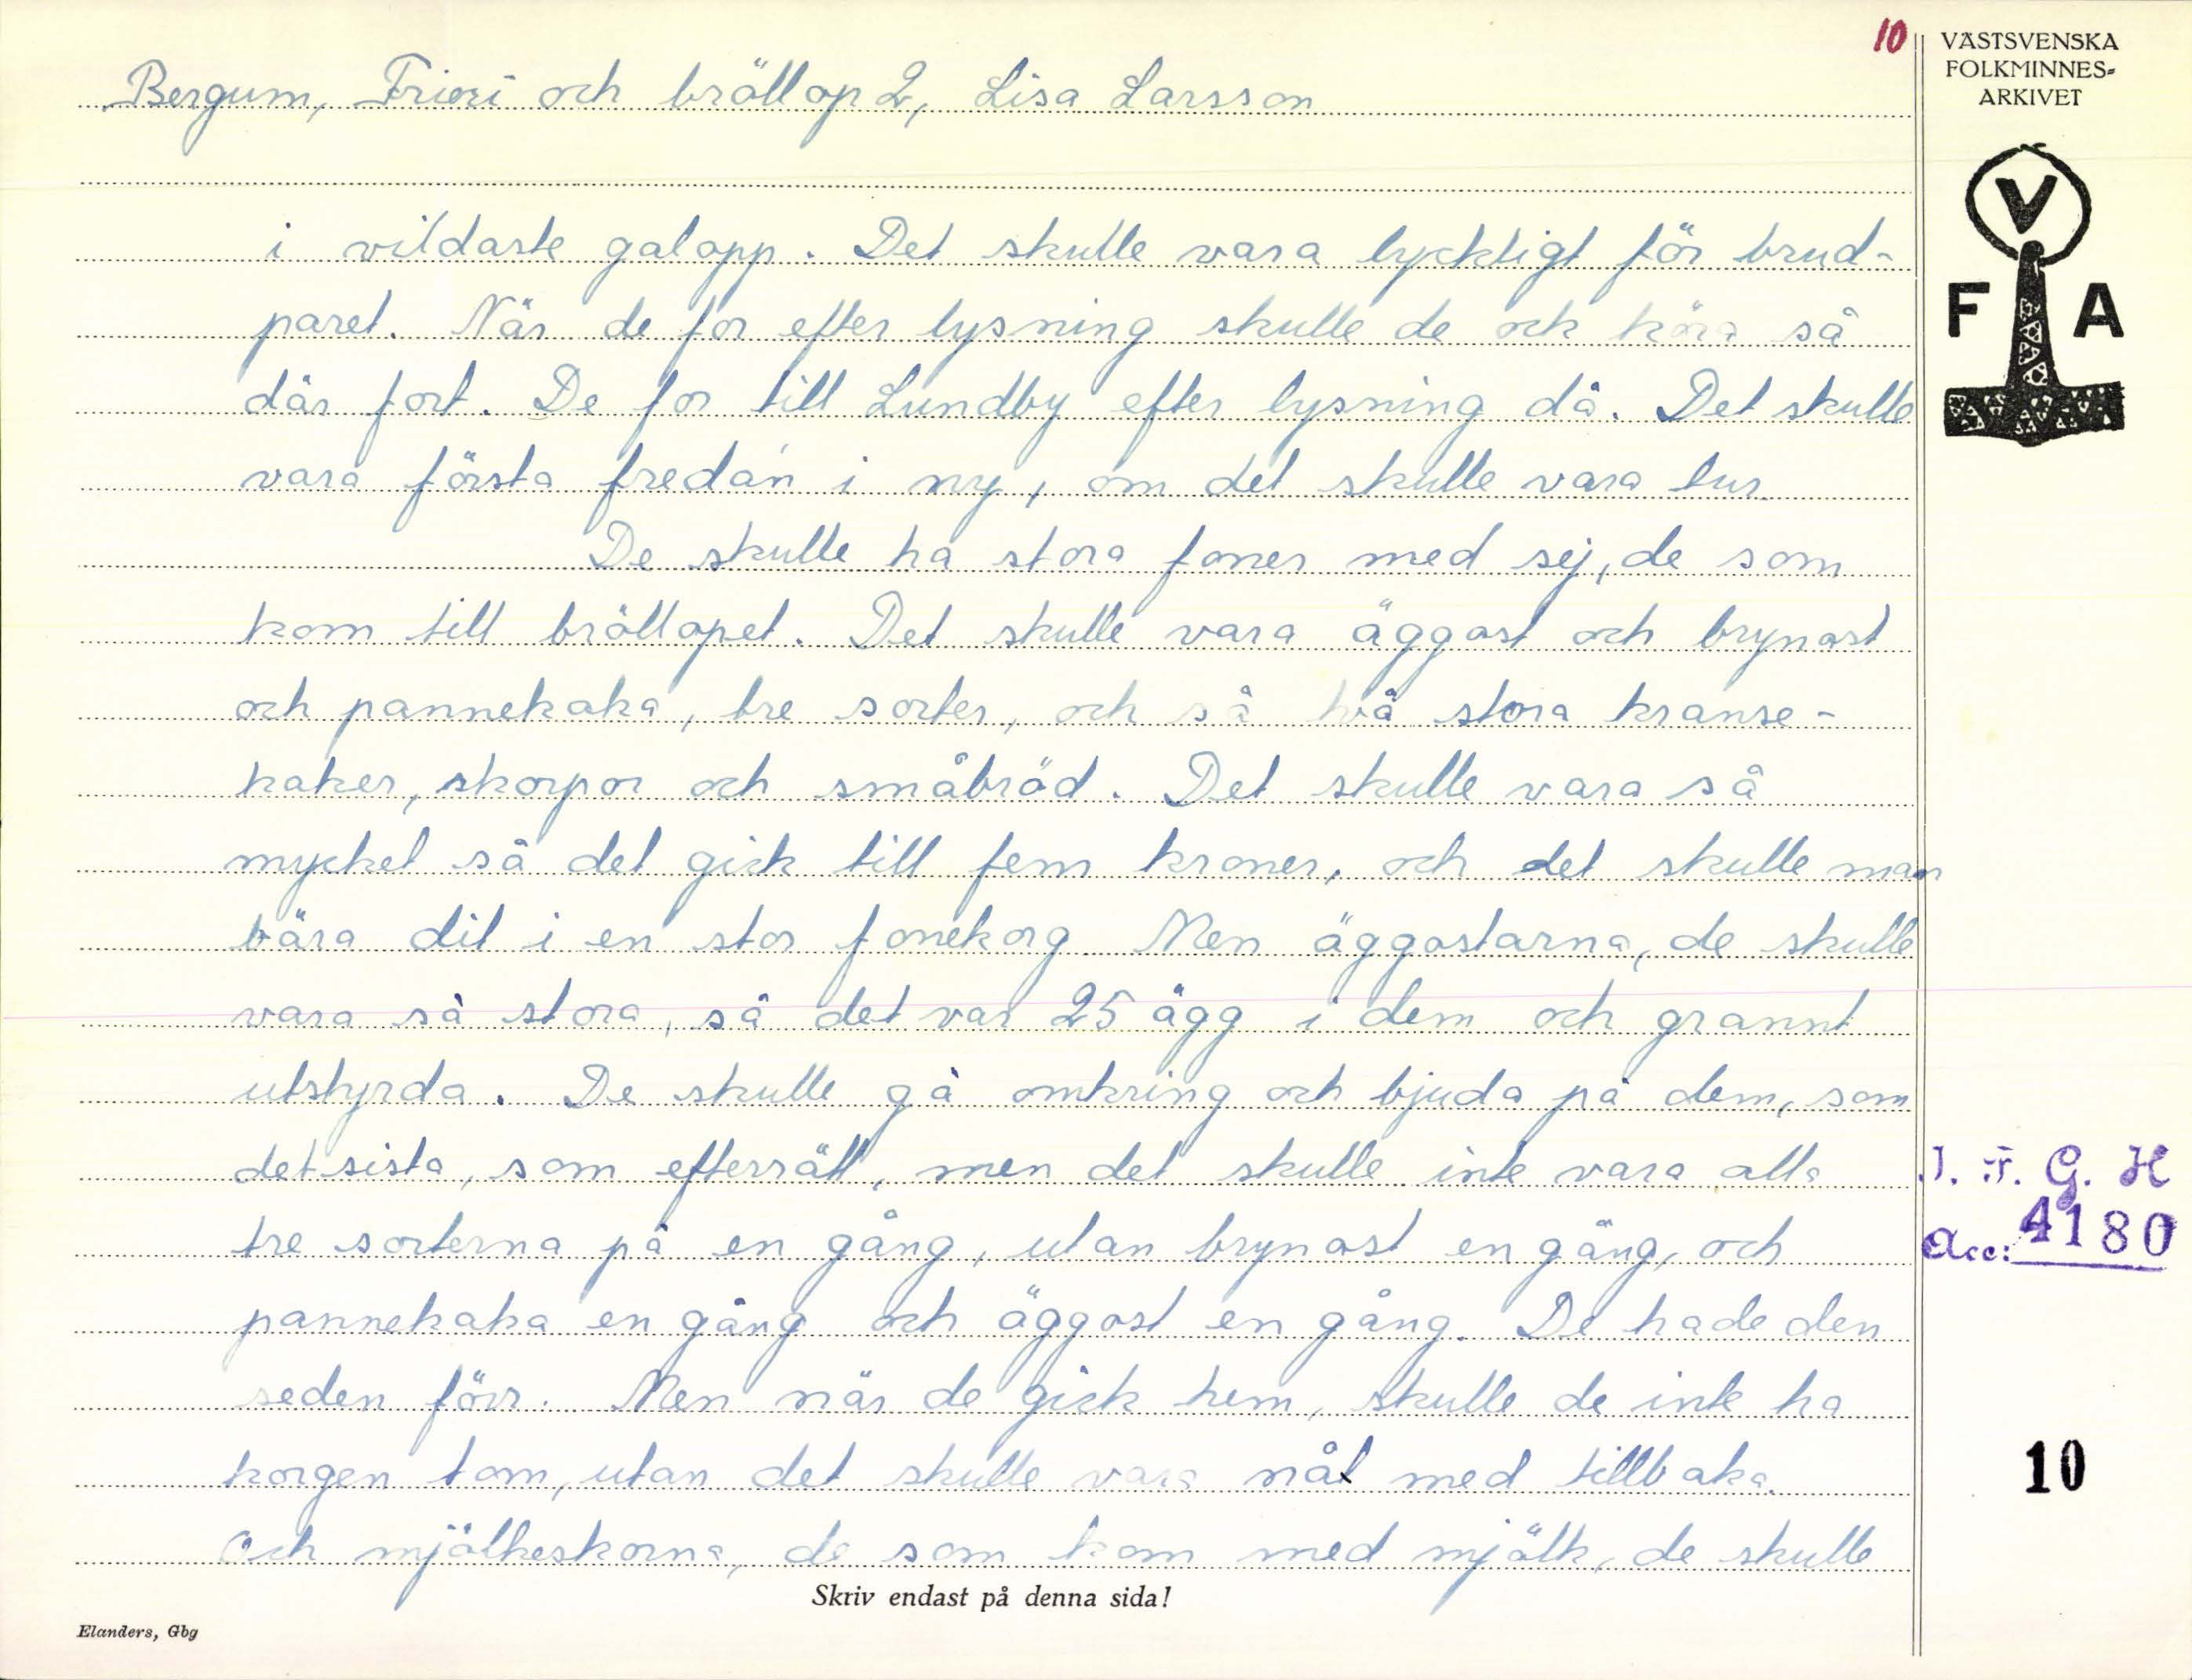 10
VÄSTSVENSKA
FOLKMINNES-
ARKIVET
V
F A
Bergum, Frieri och bröllop 2, Lisa Larsson
i vildaste galopp. Det skulle vara lyckligt för brud-
paret. När de for efter lysning skulle de och köra så
där fort. De for till Lundby efter lysning då. Det skulle
vara första fredan i ny, om det skulle vara tur.
De skulle ha stora foner med sej, de som
kom till bröllopet. Det skulle vara äggost och brynost
och pannekaka, tre sorter, och så två stora kranse-
kaker, skorpor och småbröd. Det skulle vara så
mycket så det gick till fem kroner, och det skulle man
bära dit i en stor fonekorg. Men äggostarna, de skulle
vara så stora, så det var 25 ägg i dem och grannt
utstyrda. De skulle gå omkring och bjuda på dem, som
det sista, som efterrätt, men det skulle inte vara alla
tre sorterna på en gång, utan brynost en gång, och
pannekaka en gång och äggost en gång. De hade den
seden förr. Men när de gick hem, skulle de inte ha
korgen tom, utan det skulle vara nåt med tillbaka.
Och mjölkeskorna, de som kom med mjölk, de skulle
I. F. G. H
Acc: 4180
10
Skriv endast på denna sida!
Elanders, Gbg